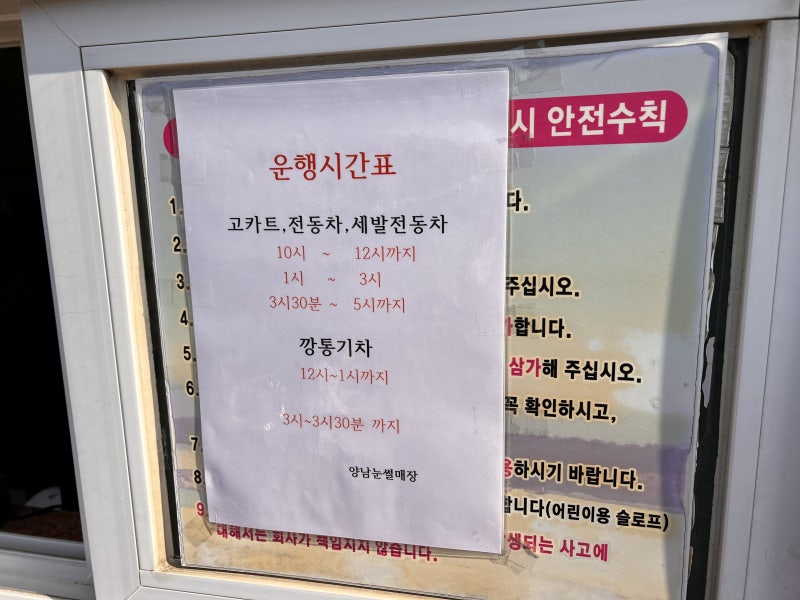 시 안전수칙
운행시간표
고카트,전동차,세발전동차
10시 ~ 12시까지
1시 ~ 3시
3시30분 ~ 5시까지
깡통기차
12시~1시까지
3시~3시30분 까지
양남눈썰매장
1. 다.
2.
3. 주십시오.
4. 합니다.
5. 삼가해 주십시오.
6. 꼭 확인하시고,
7.
8. 하시기 바랍니다.
9. 합니다(어린이용 슬로프)
대해서는 회사가 책임지지 않습니다. 생되는 사고에